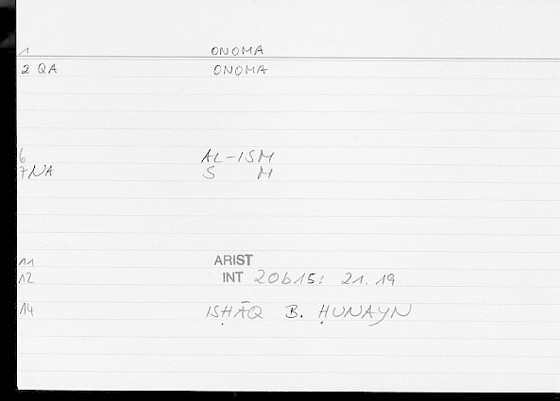 1 ONOMA
2 QA ONOMA
6 AL-ISM
7 NA S M
11 ARIST
12 INT 20b15: 21.19
14 ISḤĀQ B. ḤUNAYN